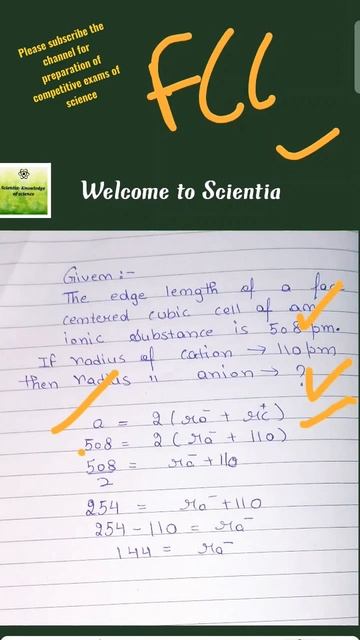 Please subscribe the
channel for
preparation of
competitive exams of
science
FCC
Scientia: Knowledge
of science
Welcome to Scientia
Given :-
The edge length of a fac
centered cubic cell of an
ionic substance is 508 pm.
If radius of cation → 110 pm
then radius " anion → ?
a = 2 (ra⁻ + rc⁺)
508 = 2 (ra⁻ + 110)
508/2 = ra⁻ + 110
254 = ra⁻ + 110
254 - 110 = ra⁻
144 = ra⁻